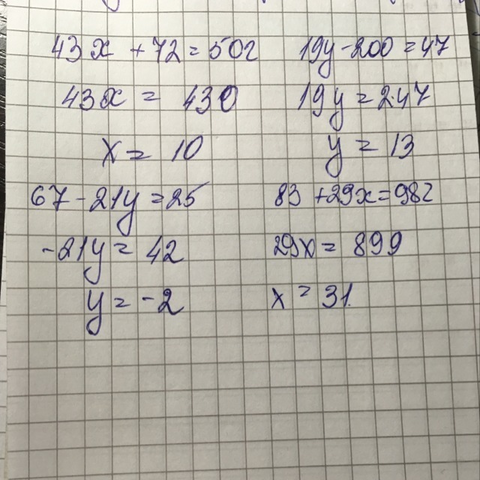 43x + 72 = 502
43x = 430
x = 10
19y - 200 = 47
19y = 247
y = 13
67 - 21y = 25
-21y = 42
y = -2
83 + 29x = 982
29x = 899
x = 31